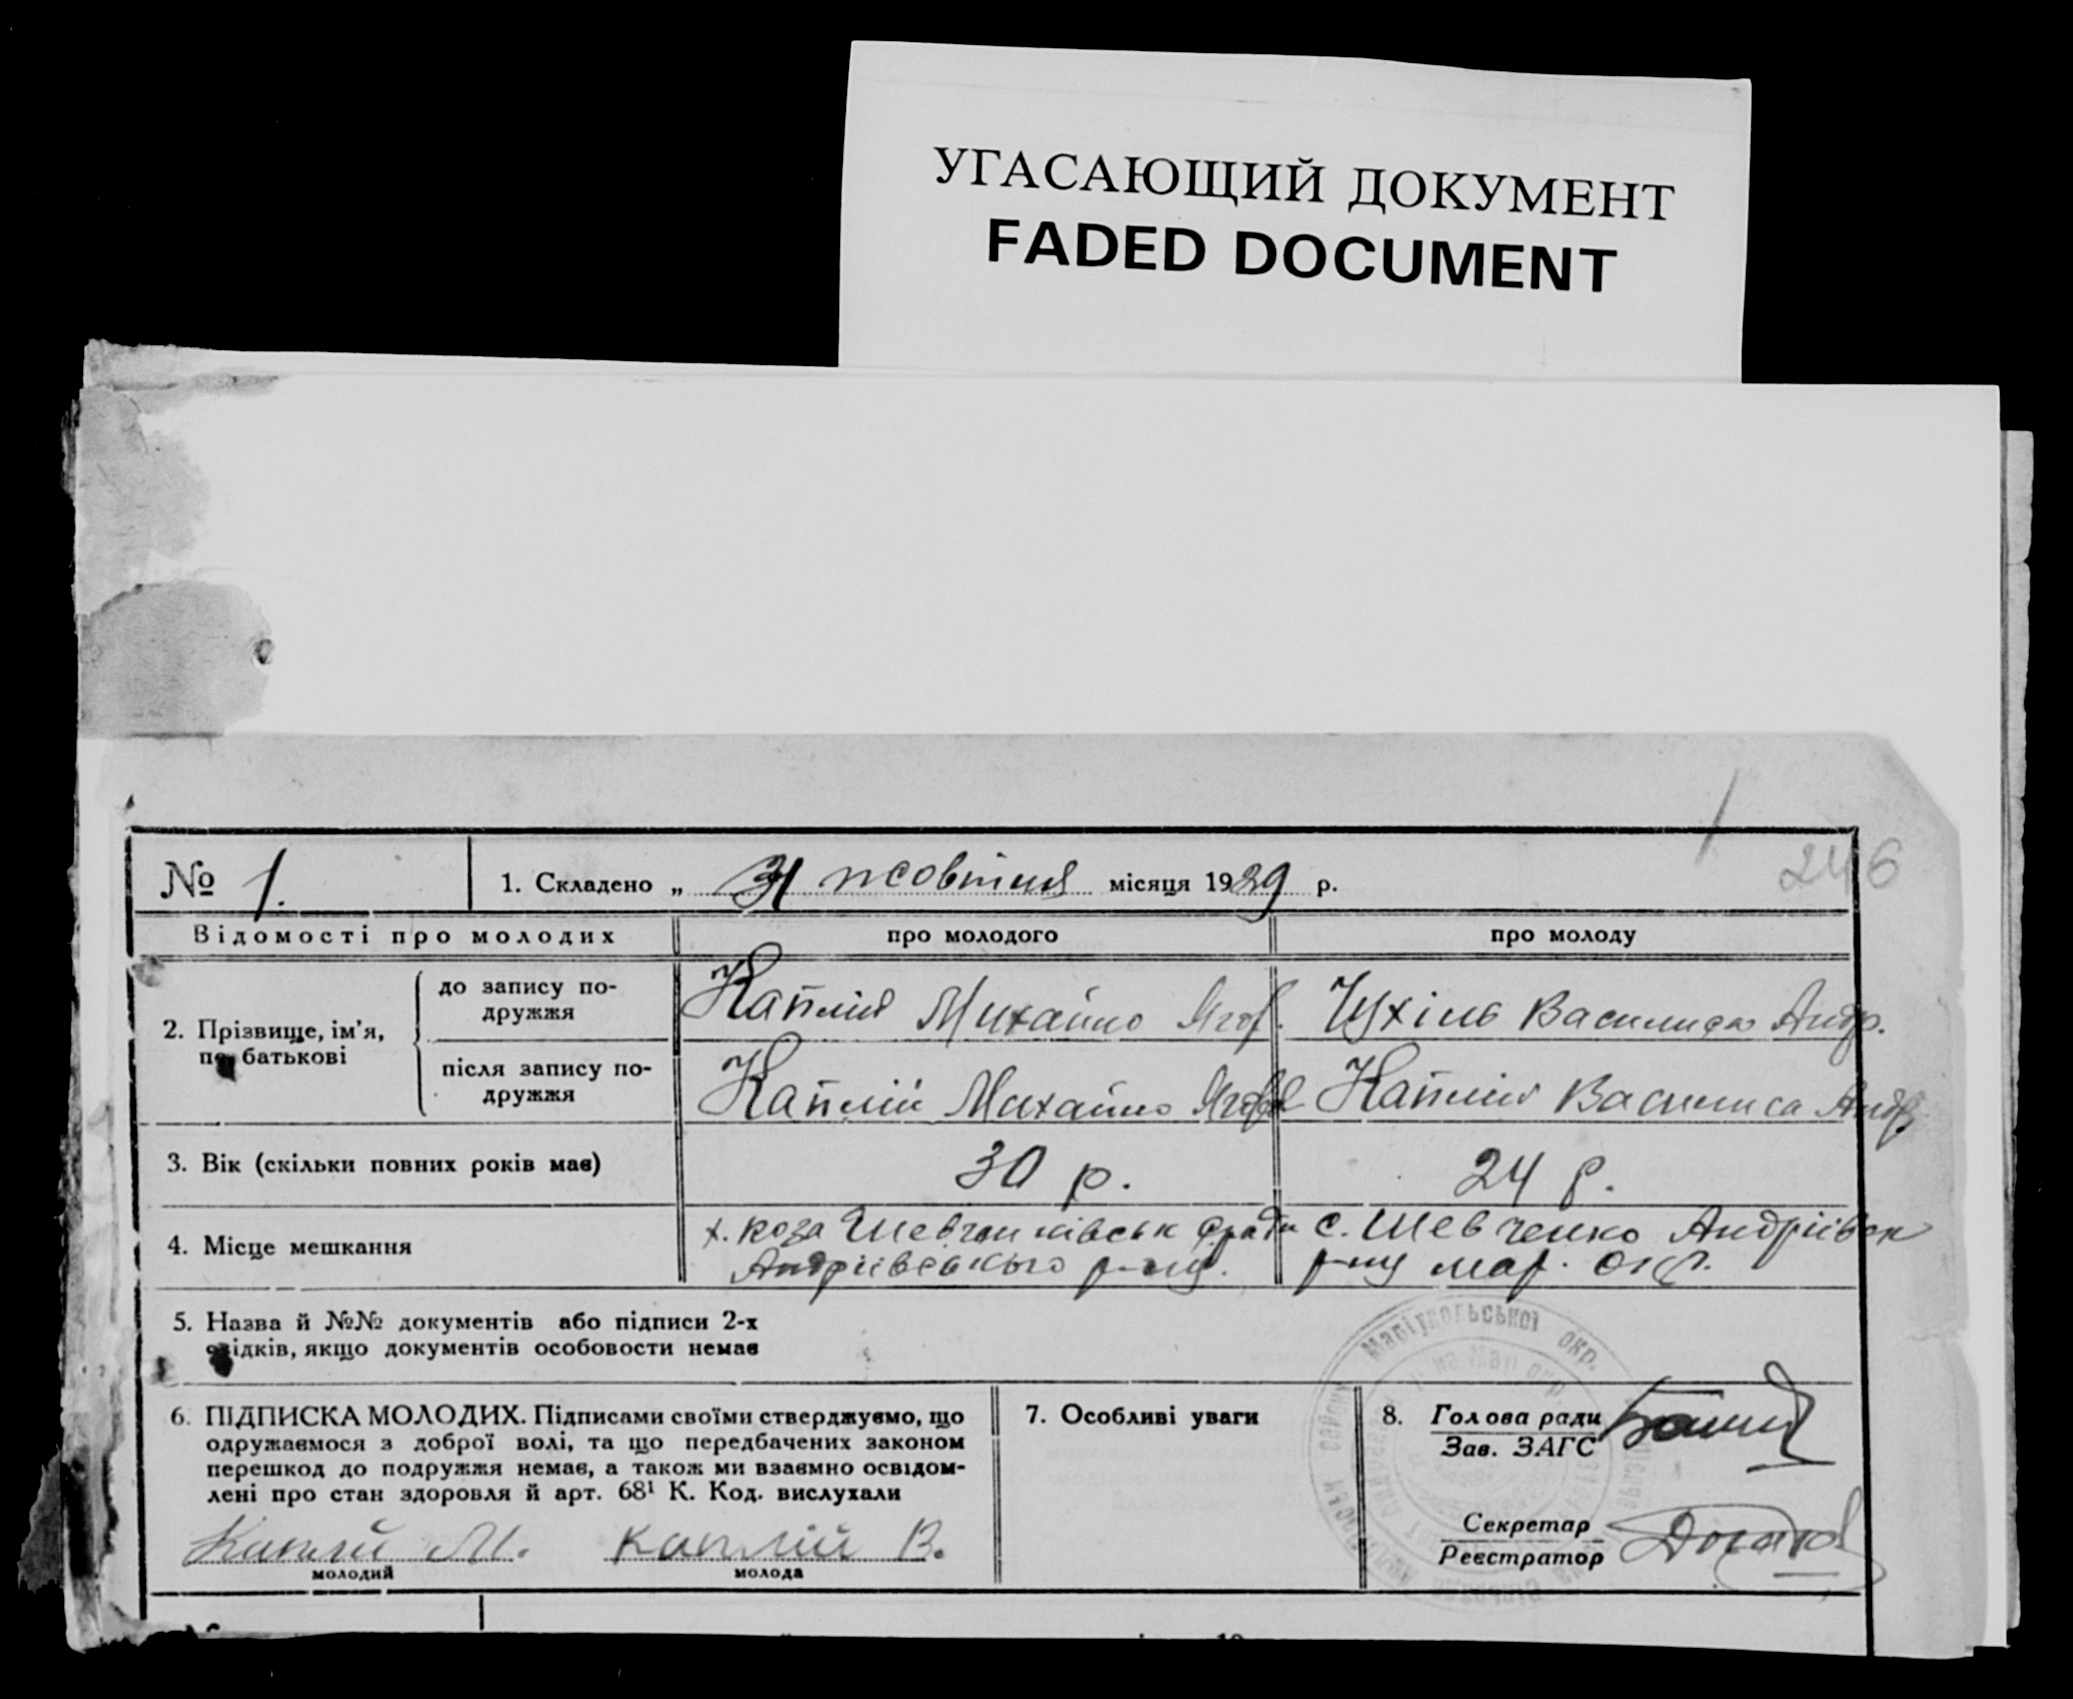 УГАСАЮЩИЙ ДОКУМЕНТ
FADED DOCUMENT
246
№ 1. 1. Складено „ 31 жовтня місяця 1929 р.
Відомості про молодих про молодого про молоду
2. Прізвище, ім’я, по батькові
до запису по-
дружжя
Каплій Михайло Ягор. Чухіль Василиса Андр.
після запису по-
дружжя
Каплій Михайло Каплій Василиса Андр.
3. Вік (скільки повних років має) 30 р. 24 р.
4. Місце мешкання
х. Роза Шевченківськ с/ради
Андріївського р-ну.
с. Шевченко Андріївськ
р-ну мар. окр.
5. Назва й №№ документів або підписи 2-х
свідків, якщо документів особовости немає
Маріупольської окр.
6. ПІДПИСКА МОЛОДИХ. Підписами своїми стверджуємо, що
одружаємося з доброї волі, та що передбачених законом
перешкод до подружжя немає, а також ми взаємно освідом-
лені про стан здоровля й арт. 68¹ К. Код. вислухали
Каплій М. Каплій В.
молодий молода
7. Особливі уваги
8. Голова ради
Зав. ЗАГС
Секретар
Реєстратор